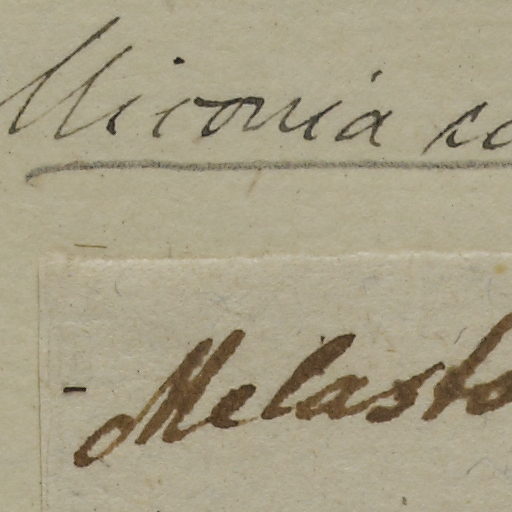 Miconia
Melasto